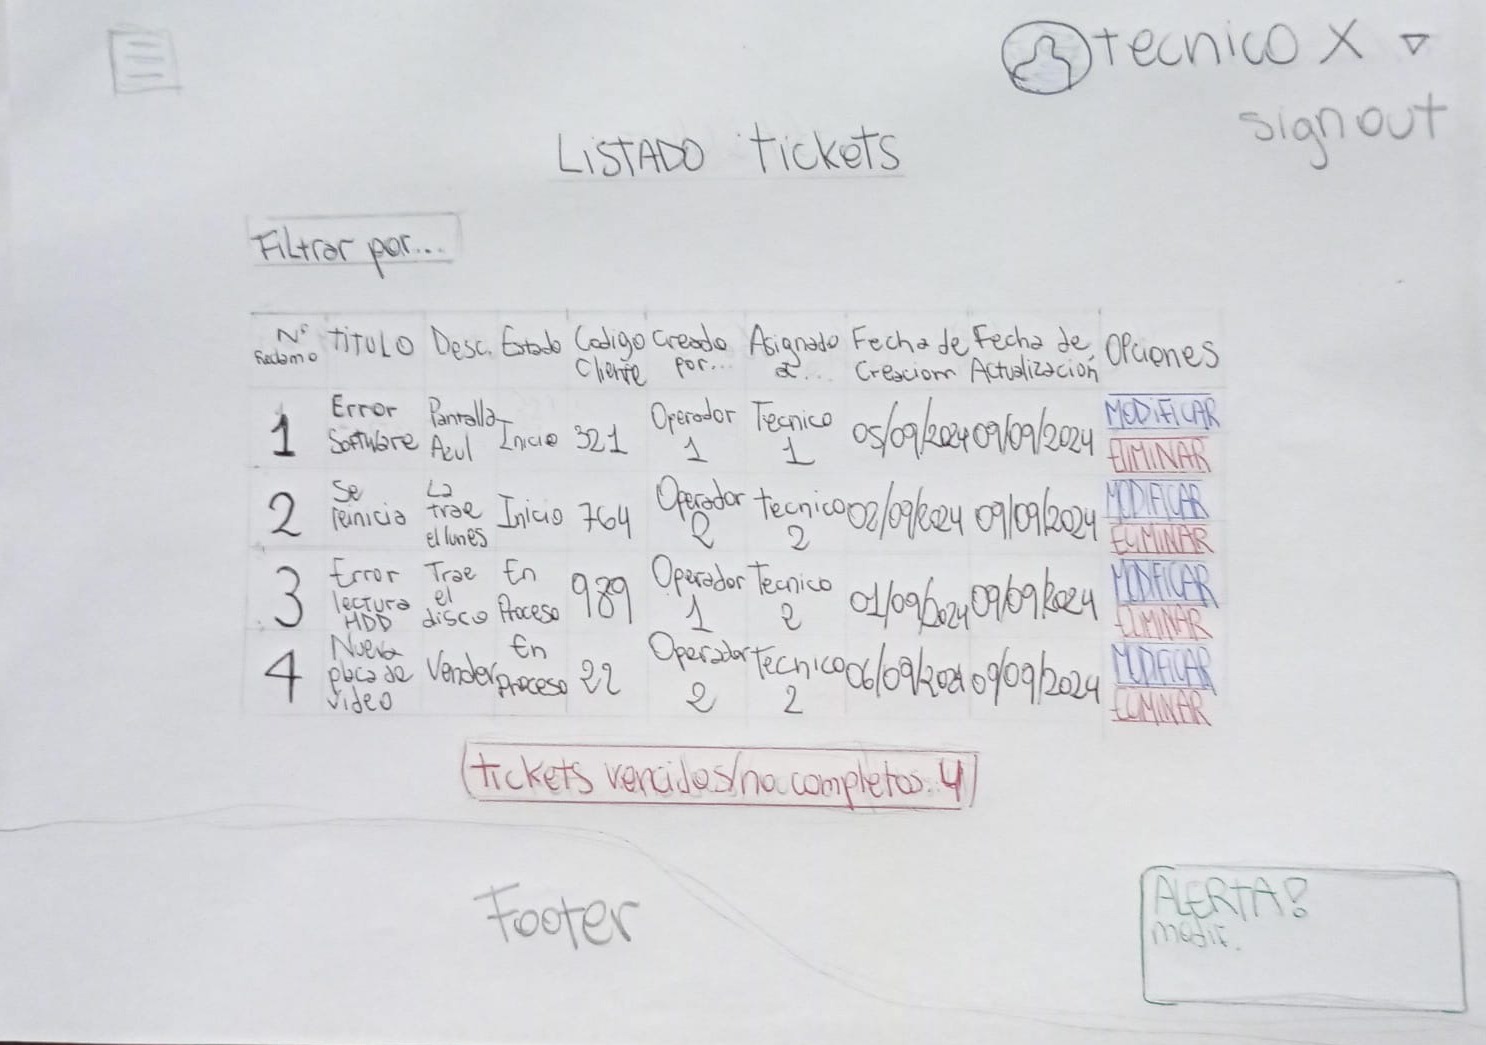 tecnico X
sign out
LiSTADO tickets
Filtrar por...
N° Reclamo TITULO Desc. Estado Codigo Cliente Creado por... Asignado a... Fecha de Creaciom Fecha de Actualización Opciones
1 Error Software Pantalla Azul Inicio 321 Operador 1 Tecnico 1 05/09/2024 09/09/2024 MODiFiCAR ELIMINAR
2 Se reinicia La trae el lunes Inicio 764 Operador 2 tecnico 2 02/09/2024 09/09/2024 MODIFICAR ELIMINAR
3 Error lectura HDD Trae el disco En Proceso 989 Operador 1 Tecnico 2 01/09/2024 09/09/2024 MODIFICAR ELIMINAR
4 Nueva placa de video Vender En proceso 22 Operador 2 tecnico 2 06/09/2024 09/09/2024 MODIFICAR ELIMINAR
tickets vencidos/no completos: 4
Footer
ALERTA!
modif.